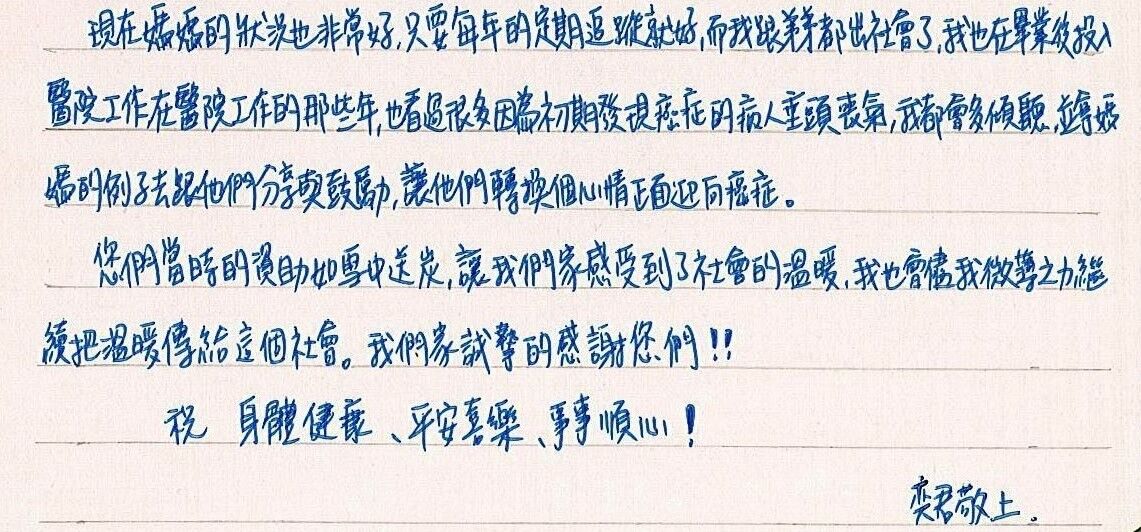 現在媽媽的狀況也非常好,只要每年的定期追蹤就好,而我跟弟弟都出社會了,我也在畢業後投入
醫院工作在醫院工作的那些年,也看過很多因為初期發現癌症的病人垂頭喪氣,我都會多傾聽,並拿媽
媽的例子去跟他們分享與鼓勵,讓他們轉換個心情正面迎向癌症。
您們當時的資助如雪中送炭,讓我們家感受到了社會的溫暖,我也會儘我微薄之力繼
續把溫暖傳給這個社會。我們家誠摯的感謝您們!!
祝 身體健康、平安喜樂、事事順心!
奕君敬上.